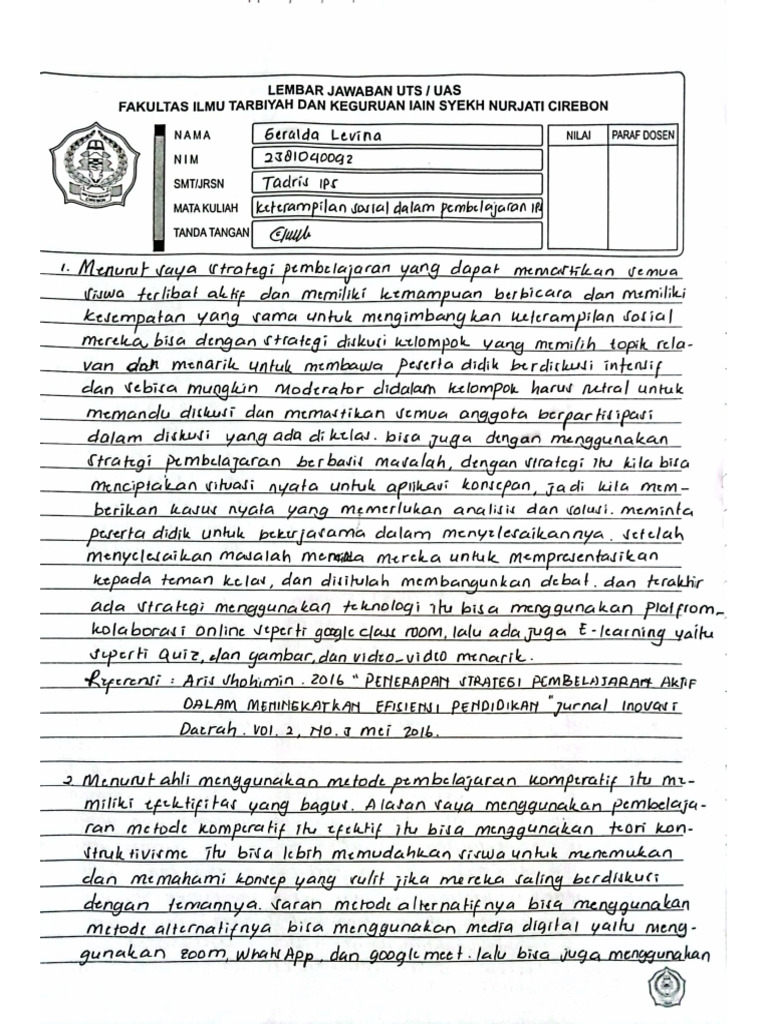 LEMBAR JAWABAN UTS / UAS
FAKULTAS ILMU TARBIYAH DAN KEGURUAN IAIN SYEKH NURJATI CIREBON
NAMA Geralda Levina NILAI PARAF DOSEN
NIM 2381040092
SMT/JRSN Tadris IPS
MATA KULIAH Keterampilan sosial dalam pembelajaran IPS
TANDA TANGAN
1. Menurut saya strategi pembelajaran yang dapat memastikan semua
siswa terlibat aktif dan memiliki kemampuan berbicara dan memiliki
kesempatan yang sama untuk mengimbangkan keterampilan sosial
mereka bisa dengan strategi diskusi kelompok yang memilih topik rela-
van dan menarik untuk membawa peserta didik berdiskusi intensif
dan sebisa mungkin moderator didalam kelompok harus netral untuk
memandu diskusi dan memastikan semua anggota berpartisipasi
dalam diskusi yang ada di kelas. bisa juga dengan menggunakan
strategi pembelajaran berbasis masalah, dengan strategi itu kita bisa
menciptakan situasi nyata untuk aplikasi konsepan, jadi kita mem-
berikan kasus nyata yang memerlukan analisis dan solusi. meminta
peserta didik untuk bekerjasama dalam menyelesaikannya. setelah
menyelesaikan masalah mereka untuk mempresentasikan
kepada teman kelas, dan disitulah membangunkan debat. dan terakhir
ada strategi menggunakan teknologi itu bisa menggunakan platfrom
kolaborasi online seperti google class room, lalu ada juga E-learning yaitu
seperti Quiz, dan gambar, dan video-video menarik.
Referensi : Aris Shohimin. 2016 "PENERAPAN STRATEGI PEMBELAJARAN AKTIF
DALAM MENINGKATKAN EFISIENSI PENDIDIKAN "Jurnal Inovasi
Daerah. Vol. 2, No. 3 mei 2016.
2. Menurut ahli menggunakan metode pembelajaran komperatif itu me-
miliki efektifitas yang bagus. Alasan saya menggunakan pembelaja-
ran metode komperatif itu efektif itu bisa menggunakan teori kon-
struktivisme itu bisa lebih memudahkan siswa untuk menemukan
dan memahami konsep yang sulit jika mereka saling berdiskusi
dengan temannya. saran metode alternatifnya bisa menggunakan
metode alternatifnya bisa menggunakan media digital yaitu meng-
gunakan zoom, WhatsApp, dan google meet. lalu bisa juga menggunakan